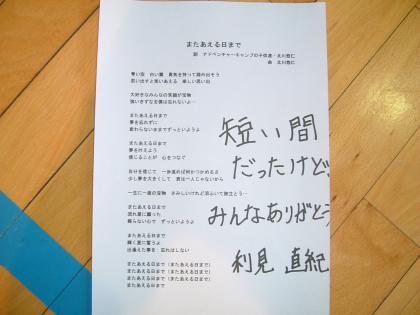 またあえる日まで
詞 アドベンチャーキャンプの子供達・北川悠仁
曲 北川悠仁
青い空 白い雲 勇気を持って踏み出そう
思い出すと笑いあえる 楽しい思い出
大好きなみんなの笑顔が宝物
強いきずなを僕は忘れないよ…
またあえる日まで
夢を忘れずに
変わらないままでずっといようよ
またあえる日まで
夢を叶えよう
信じることが 心をつなぐ
自分を信じて 一歩進めば何かつかめるさ
少し夢を大きくして 君は一人じゃないから
一生に一度の宝物 さみしいけれど忍ぶいて旅立とう…
またあえる日まで
流れ星に願った
飾らない心で ずっといようよ
またあえる日まで
輝く星に誓うよ
出逢えた事を 忘れはしない
またあえる日まで (またあえる日まで)
またあえる日まで (またあえる日まで)
またあえる日まで (またあえる日まで)
またあえる日まで
短い間
だったけど。
みんなありがとう
利見 直紀